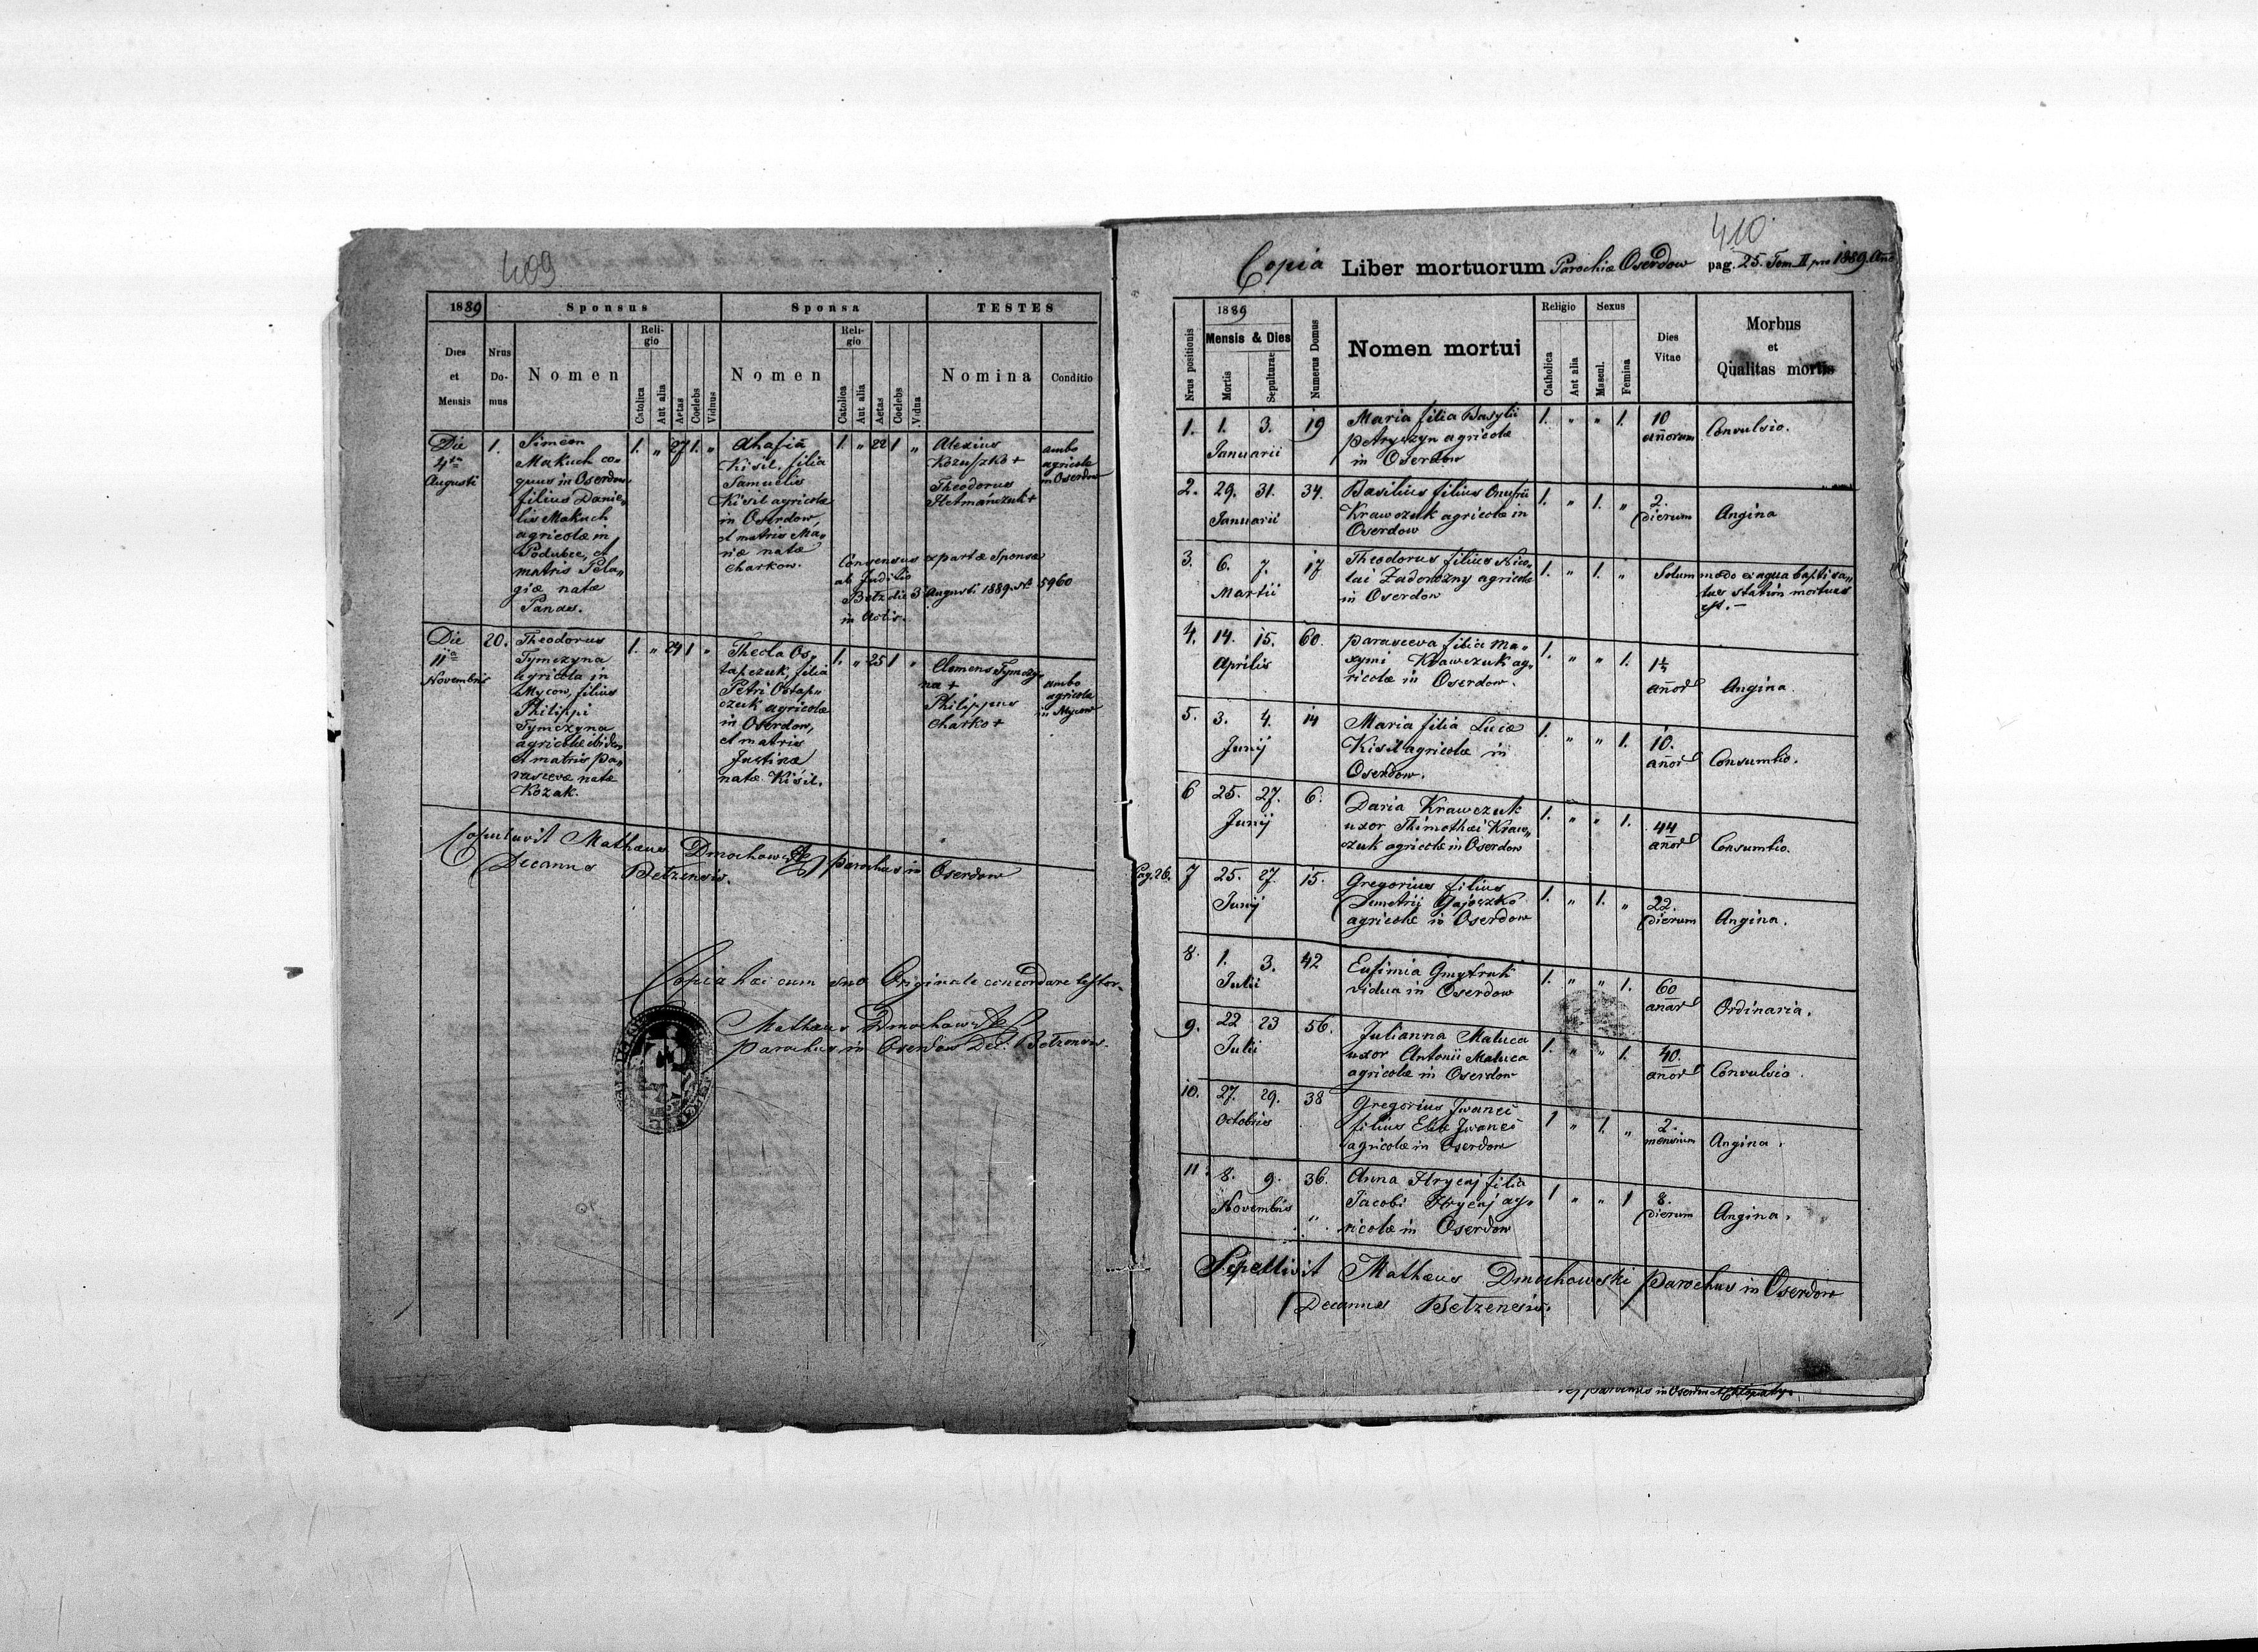 409
1889
Sponsus
Sponsa
TESTES
Dies et Mensis
Nrus Domus
Nomen
Religio
Catolica
Aut alia
Aetas
Coelebs
Viduus
Nomen
Religio
Catolica
Aut alia
Aetas
Coelebs
Vidua
Nomina
Conditio
Die 1. Simeon 1. „ 27 1. „ Ahafia 1. „ 22 1 „ Alexius ambo
4ta Makuch co- Kisil, filia Kozuszko + agricolæ
Augusti quus in Oserdow Samuelis Theodorus in Oserdow
filius Danie- Kisil agricolæ Hetmańczuk +
lis Makuch in Oserdow,
agricolæ in et matris Ma-
Podubce, et riæ natæ Consensus ex partæ Sponsæ
matris Pela- Charkow. ab Juditio
giæ natæ Betz die 3 Augusti 1889. № 5960
Panas. in Actis.
Die 20. Theodorus 1. „ 24 1 „ Thecla Os- 1. „ 25 1 „ Clemens Tymczy-
11a Tymczyna tapczuk, filia na + ambo
Novembris agricola in Petri Ostap- Philippus agricolæ
Mycow, filius czuk agricolæ Charko + in Mycow
Philippi in Oserdow,
Tymczyna et matris
agricolæ ibidem Justinæ
et matris Pa- natæ Kisil.
rascevæ natæ
Kozak.
Copulavit Mathæus Dmochowski parochus in Oserdow
Decanus Betzensis.
Copia hæc cum suo Originale concordare testor
Mathæus Dmochowski
parochus in Oserdow Dec. Betzensis.
410
Copia Liber mortuorum Parochiæ Oserdow pag. 25. Tom II pro 1889. Ano
Nrus positionis
1889
Mensis & Dies
Mortis
Sepulturae
Numerus Domus
Nomen mortui
Religio
Catholica
Aut alia
Sexus
Mascul.
Femina
Dies Vitae
Morbus
et
Qualitas mortis
1. 1. 3. 19 Maria filia Basylii 1. „ „ 1. 10 Convulsio.
Januarii Petryszyn agricolæ añorum
in Oserdow
2. 29. 31. 34. Basilius filius Onufrii 1. „ 1. „ 2. Angina
Januarii Krawczuk agricolæ in dierum
Oserdow
3. 6. 7. 17 Theodorus filius Nico- 1. „ 1. „ Solummodo ex aqua baptisa-
Martii lai Zadorozny agricolæ tus statim mortuus
in Oserdow est. —
4. 14. 15. 60. Parasceva filia Ma- 1. „ „ 1. Angina.
Aprilis xymi Krawczuk ag- añor
ricolæ in Oserdow.
5. 3. 4. 14 Maria filia Lucæ 1. „ „ 1. 10. Consumtio.
Junij Kisil agricolæ in añor
Oserdow.
6 25. 27. 6. Daria Krawczuk 1. „ „ 1. 44 Consumtio.
Junij uxor Thimothæi Kraw- añor
czuk agricolæ in Oserdow
Pag. 26. 7 25. 27. 15. Gregorius filius 1. „ 1. „ 22. Angina.
Junij Dimetrij Gajoszko dierum
agricolæ in Oserdow
8. 1. 3. 42 Eufimia Gmytruk 1. „ „ 1. 60 Ordinaria.
Julii vidua in Oserdow añor
9. 22 23 56. Julianna Maluca 1. „ „ 1. 40. Convulsio.
Julii uxor Antonii Maluca añor
agricolæ in Oserdow
10. 27. 29. 38 Gregorius Iwanec 1 „ 1. „ 2. Angina.
Octobris filius Eliæ Iwanec mensium
agricolæ in Oserdow
11. 8. 9. 36. Anna Hrycaj filia 1 „ „ 1 8. Angina.
Novembris „ Jacobi Hrycaj ag- dierum
ricolæ in Oserdow
Sepellivit Mathæus Dmochowski parochus in Oserdow
Decanus Betzensis.
parochus in Oserdow